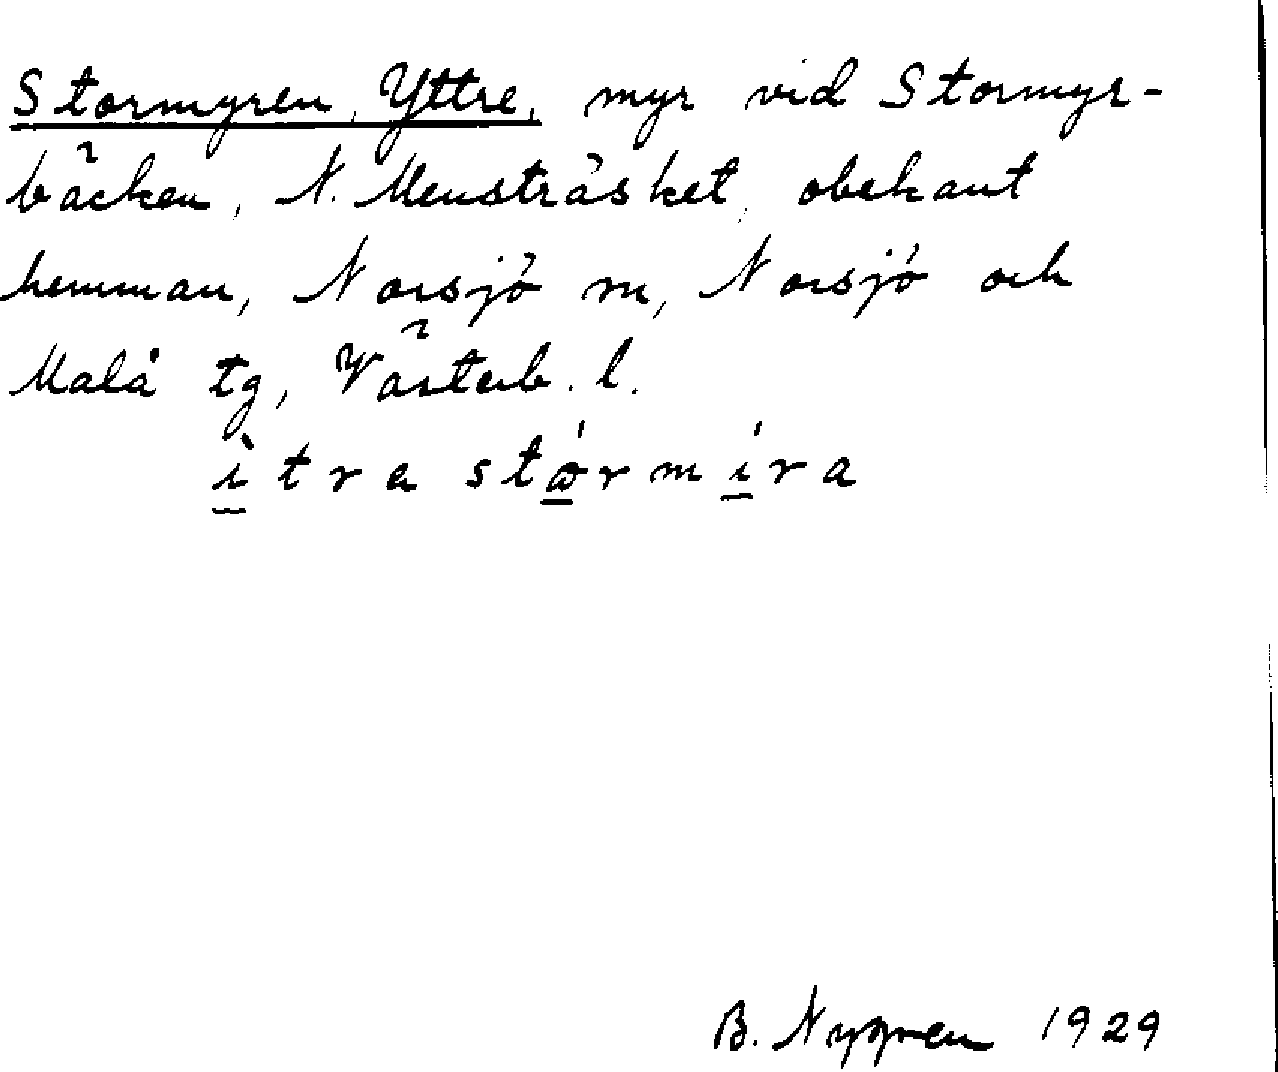 Stormyren, Yttre, myr vid Stormyr-
bäcken, N. Menträsket, obekant
hemman, Norsjö sn, Norsjö och
Malå tg, Västerb. l.
ìtra stórmíra
B. Nygren 1929